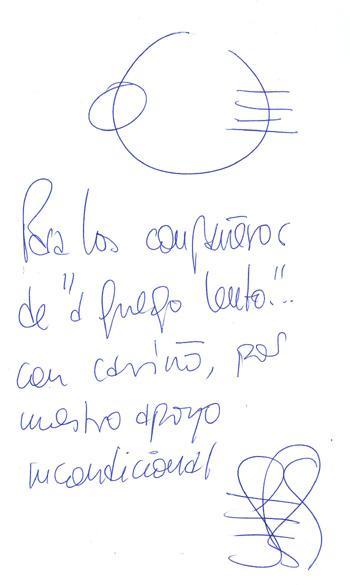 Para los compañeros
de "a fuego lento"...
con cariño, por
vuestro apoyo
incondicional